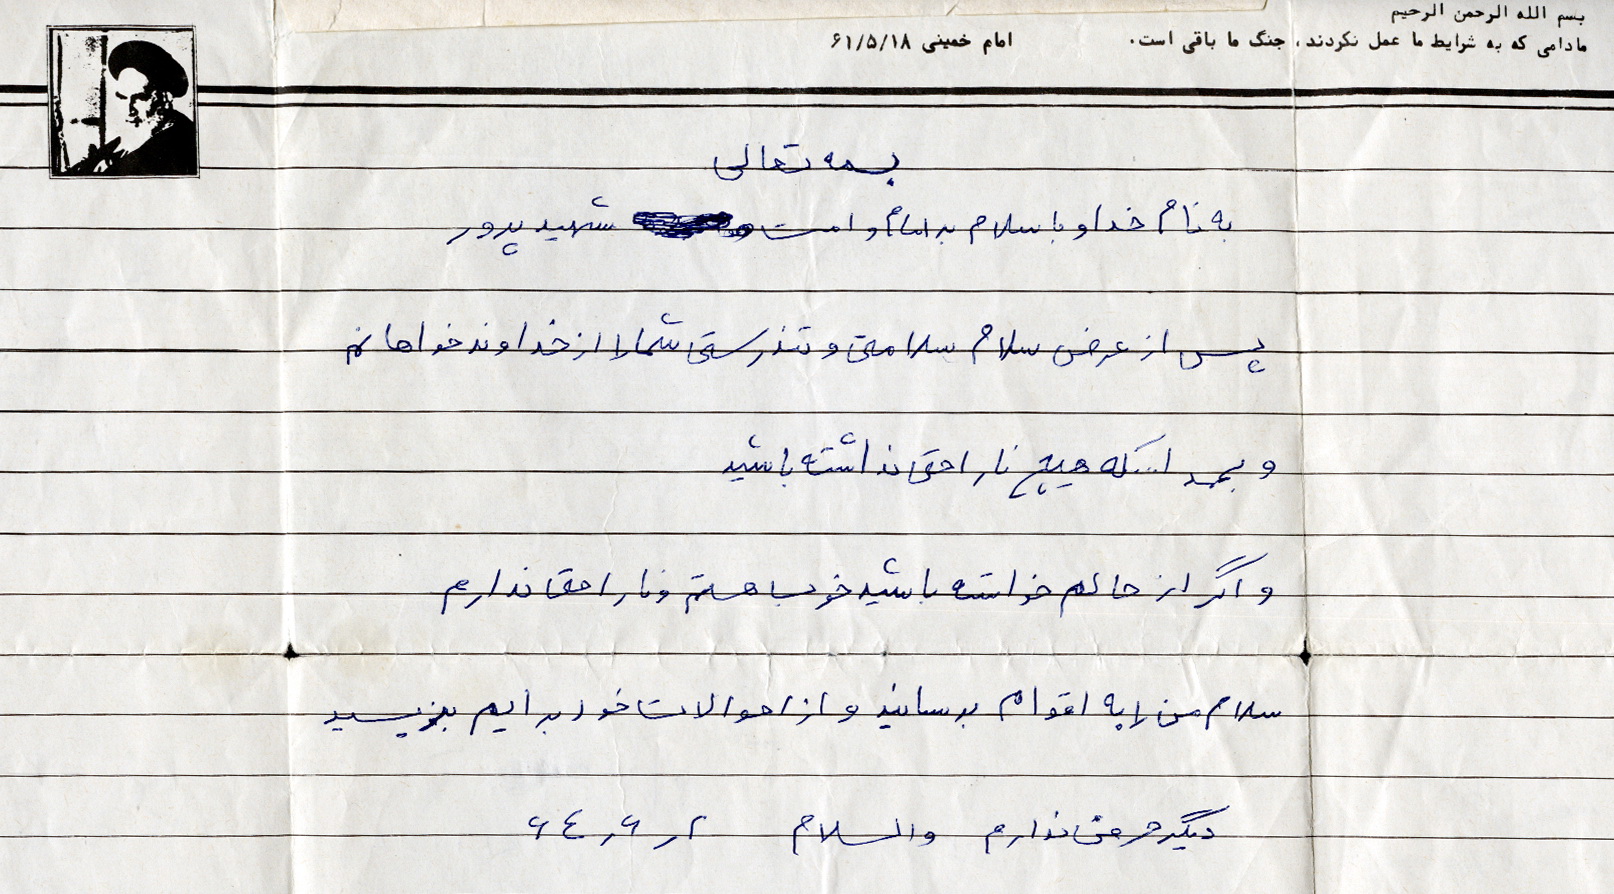 بسم الله الرحمن الرحیم
مادامی که به شرایط ما عمل نکردند، جنگ ما باقی است. امام خمینی ۶۱/۵/۱۸
بسمه تعالی
به نام خدا و با سلام بر امام و امت شهید پرور
پس از عرض سلام سلامتی و تندرستی شما را از خداوند خواهانم
و بمید اینکه هیچ ناراحتی نداشته باشید
و اگر از حالم خواسته باشید خوب هستم و ناراحتی ندارم
سلام من را به اقوام برسانید و از احوالات خود برایم بنویسید
دیگر حرفی ندارم والسلام ۲ر۶ر۶۴